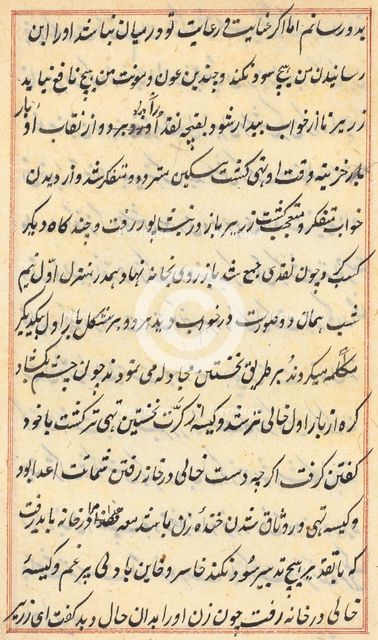 بدو رسانم اما اگر عنایت و رعایت تو در میان نباشد او را این
رسانیدن من هیچ سود نکند و چندین عون و سونت من هیچ نافع نیاید
زریر تا از خواب بیدار شود بقچه نقد او را برد و بر دو از نقاب او بار
خزینه وقت او تهی گشت مسکین متردد و متفکر شد و از دیدن
خواب متفکر و متعجب گشت زریر باز در نیشاپور رفت و چند گاه دیگر
کسب و چون نقدی جمع شد باز روی بخانه نهاد و همدر منزل اول نیم
شب همان دو صورت در خواب دید هر دو بر شکل بار اول با یکدیگر
مکالمه میکردند و بر طریق نخستین مجادله می نمودند چون چشم بگشاد
گره از بار اول خالی تر شد و کیسه از کرت نخستین تهی تر گشت با خود
گفتن گرفت اگرچه دست خالی در خانه رفتن شماتت اعدا بود
و کیسه تهی در وثاق شدن خنده زن باشد مرا در خانه باید رفت
که با تقدیر هیچ تدبیر سود نکند خاسر و خایب با دلی پر غم و کیسهٔ
خالی در خانه رفت چون زن او را بدان حال دید گفت ای زریر